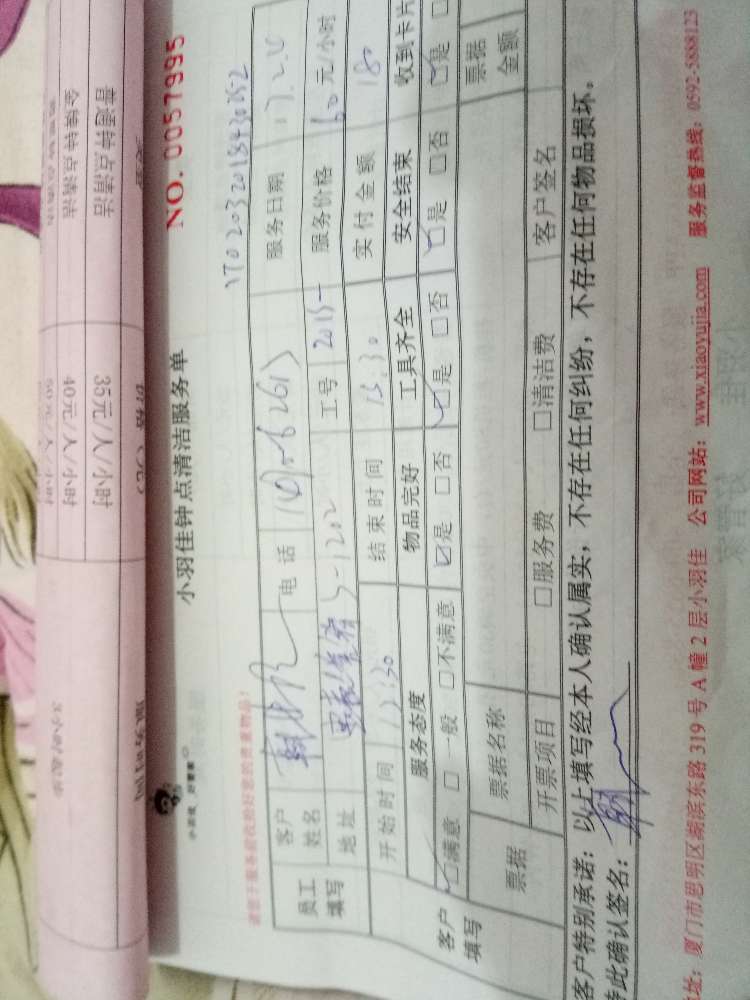 小羽佳钟点清洁服务单
NO. 0057995
小羽佳 好管家
请您于服务前收拾好您的贵重物品!
员工填写
客户姓名
电话
服务日期 17.2.4
地址
工号
服务价格 60 元/小时
开始时间 12:30
结束时间 15:30
实付金额 180
客户填写
服务态度
物品完好
工具齐全
安全结束
收到卡片
□满意 □一般 □不满意
□是 □否
□是 □否
□是 □否
□是
票据
票据名称
票据金额
开票项目
□服务费
□清洁费
客户签名
客户特别承诺:以上填写经本人确认属实,不存在任何纠纷,不存在任何物品损坏。
特此确认签名:
址:厦门市思明区湖滨东路 319 号 A 幢 2 层小羽佳 公司网站:www.xiaoyujia.com 服务监督热线:0592-5888123
普通钟点清洁
35元/人/小时
金牌钟点清洁
40元/人/小时